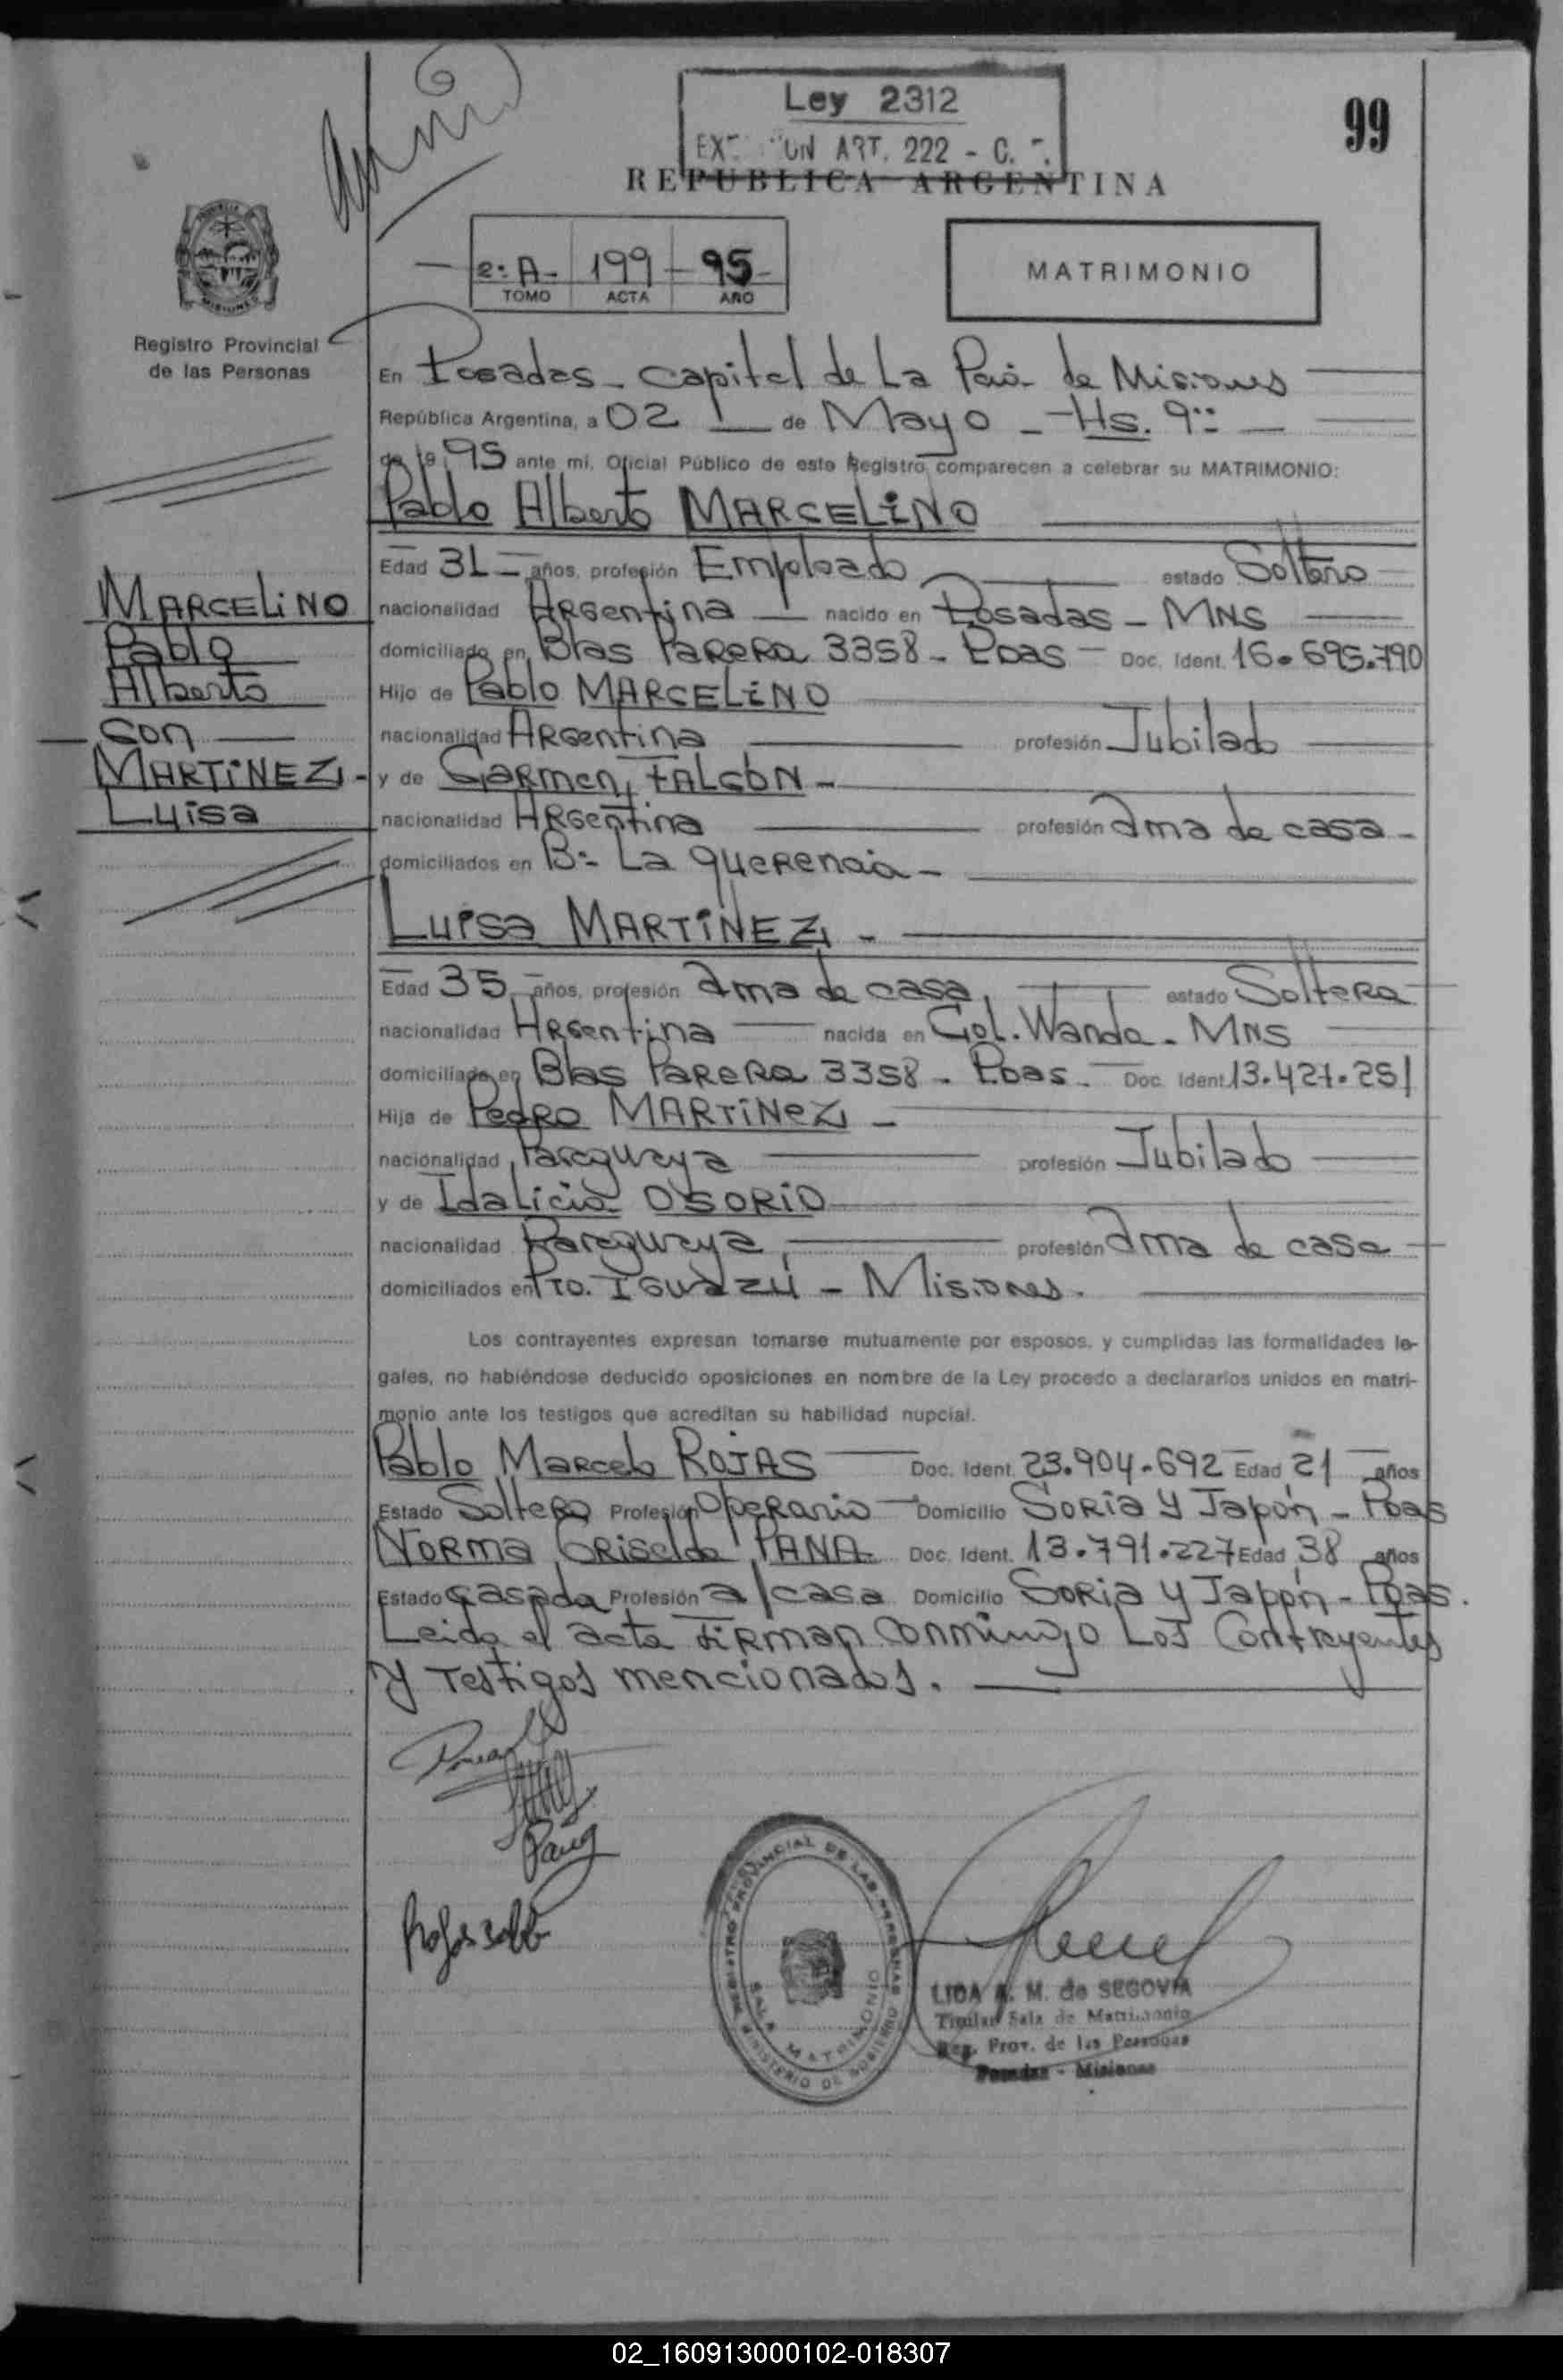 Ley 2312
ART. 222 - C.
99
REPUBLICA ARGENTINA
2º A- 199 - 95-
TOMO ACTA AÑO
MATRIMONIO
Registro Provincial
de las Personas
En Posadas - Capital de La Pcia de Misiones
República Argentina, a 02 de Mayo - Hs. 9::
de 19 95 ante mi, Oficial Público de este Registro, comparecen a celebrar su MATRIMONIO:
Pablo Alberto MARCELINO
Edad 31 años, profesión Empleado estado Soltero
MARCELINO
Pablo
Alberto
con
MARTINEZ -
Luisa
nacionalidad Argentina nacido en Posadas - MNS
domiciliado en Blas Parera 3358 - Pdas - Doc. Ident. 16.695.790
Hijo de Pablo MARCELINO
nacionalidad Argentina profesión Jubilado
y de Carmen FALCON -
nacionalidad Argentina profesión ama de casa -
domiciliados en Bº La querencia -
Luisa MARTINEZ -
Edad 35 años, profesión ama de casa, estado Soltera
nacionalidad Argentina nacida en Col. Wanda - MNS
domiciliada en Blas Parera 3358 - Pdas. Doc. Ident. 13.421.251
Hija de Pedro MARTINEZ -
nacionalidad Paraguaya profesión Jubilado
y de Idalicia OSORIO
nacionalidad Paraguaya profesión ama de casa
domiciliados en Pto. Iguazú - Misiones.
Los contrayentes expresan tomarse mutuamente por esposos, y cumplidas las formalidades le-
gales, no habiéndose deducido oposiciones en nombre de la Ley procedo a declararlos unidos en matri-
monio ante los testigos que acreditan su habilidad nupcial.
Pablo Marcelo ROJAS Doc. Ident. 23.904.692 Edad 21 años
Estado Soltero Profesión Operario Domicilio Soria y Japón - Pdas
Norma Griselda PANA Doc. Ident. 13.791.227 Edad 38 años
Estado casada Profesión a/casa Domicilio Soria y Japón - Pdas.
Leida el acta firman conmigo Los Contrayentes
y Testigos mencionados.
REGISTRO PROVINCIAL DE LAS PERSONAS
SALA MATRIMONIO
MINISTERIO DE GOBIERNO
LIDA A. M. de SEGOVIA
Titular Sala de Matrimonio
Reg. Prov. de las Personas
Posadas - Misiones
02_160913000102-018307